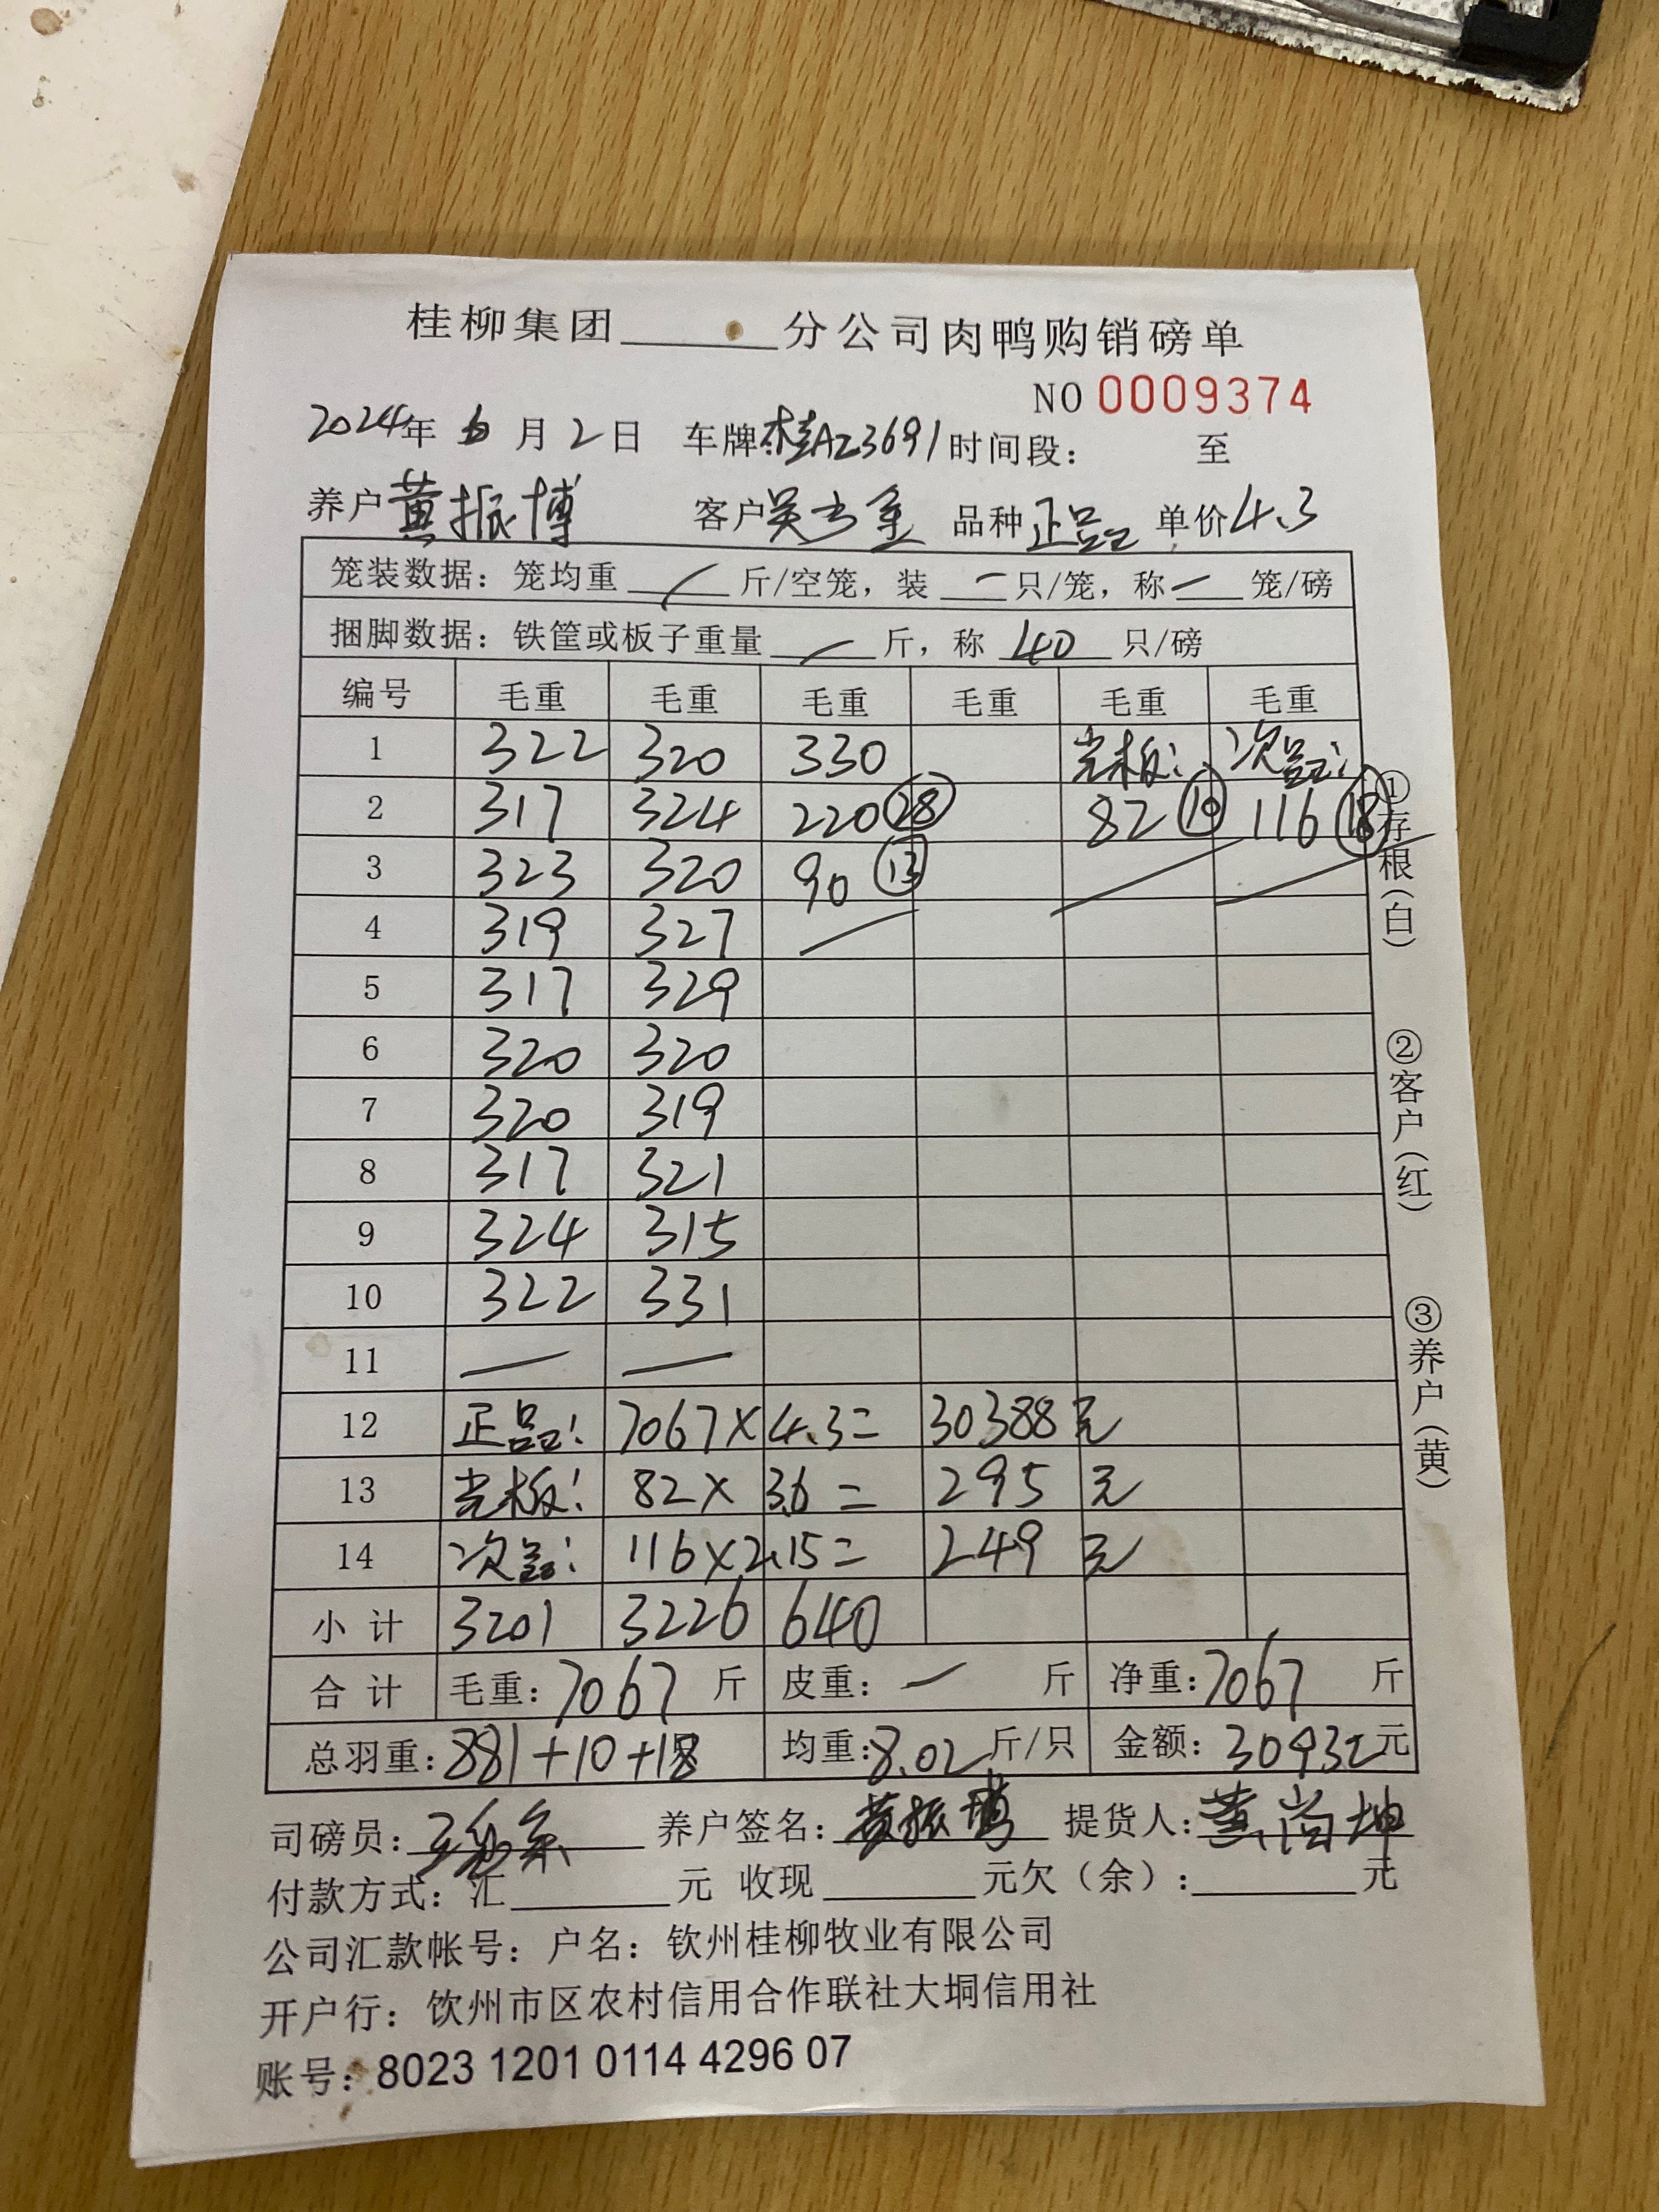 桂柳集团 分公司肉鸭购销磅单
NO 0009374
2024年 6 月 2 日 车牌 桂AZ3691 时间段: 至
养户 黄振博 客户 吴 金 品种 正品 单价 4.3
笼装数据: 笼均重 / 斤/空笼, 装 — 只/笼, 称 — 笼/磅
捆脚数据: 铁筐或板子重量 — 斤, 称 40 只/磅
编号 毛重 毛重 毛重 毛重 毛重 毛重
1 322 320 330 光板: 次品:
2 317 324 220 28 82 10 116 18
3 323 320 90 13
4 319 327
5 317 329
6 320 320
7 320 319
8 317 321
9 324 315
10 322 331
11 — —
12 正品: 7067×4.3= 30388元
13 光板: 82×3.6= 295元
14 次品: 116×2.15= 249元
小 计 3201 3226 640
合 计 毛重: 7067 斤 皮重: — 斤 净重: 7067 斤
总羽重: 881+10+18 均重: 8.02 斤/只 金额: 30932元
司磅员: 养户签名: 黄振博 提货人: 黄尚坤
付款方式: 汇 元 收现 元欠(余): 元
公司汇款帐号: 户名: 钦州桂柳牧业有限公司
开户行: 钦州市区农村信用合作联社大垌信用社
账号: 8023 1201 0114 4296 07
①存根(白)
②客户(红)
③养户(黄)